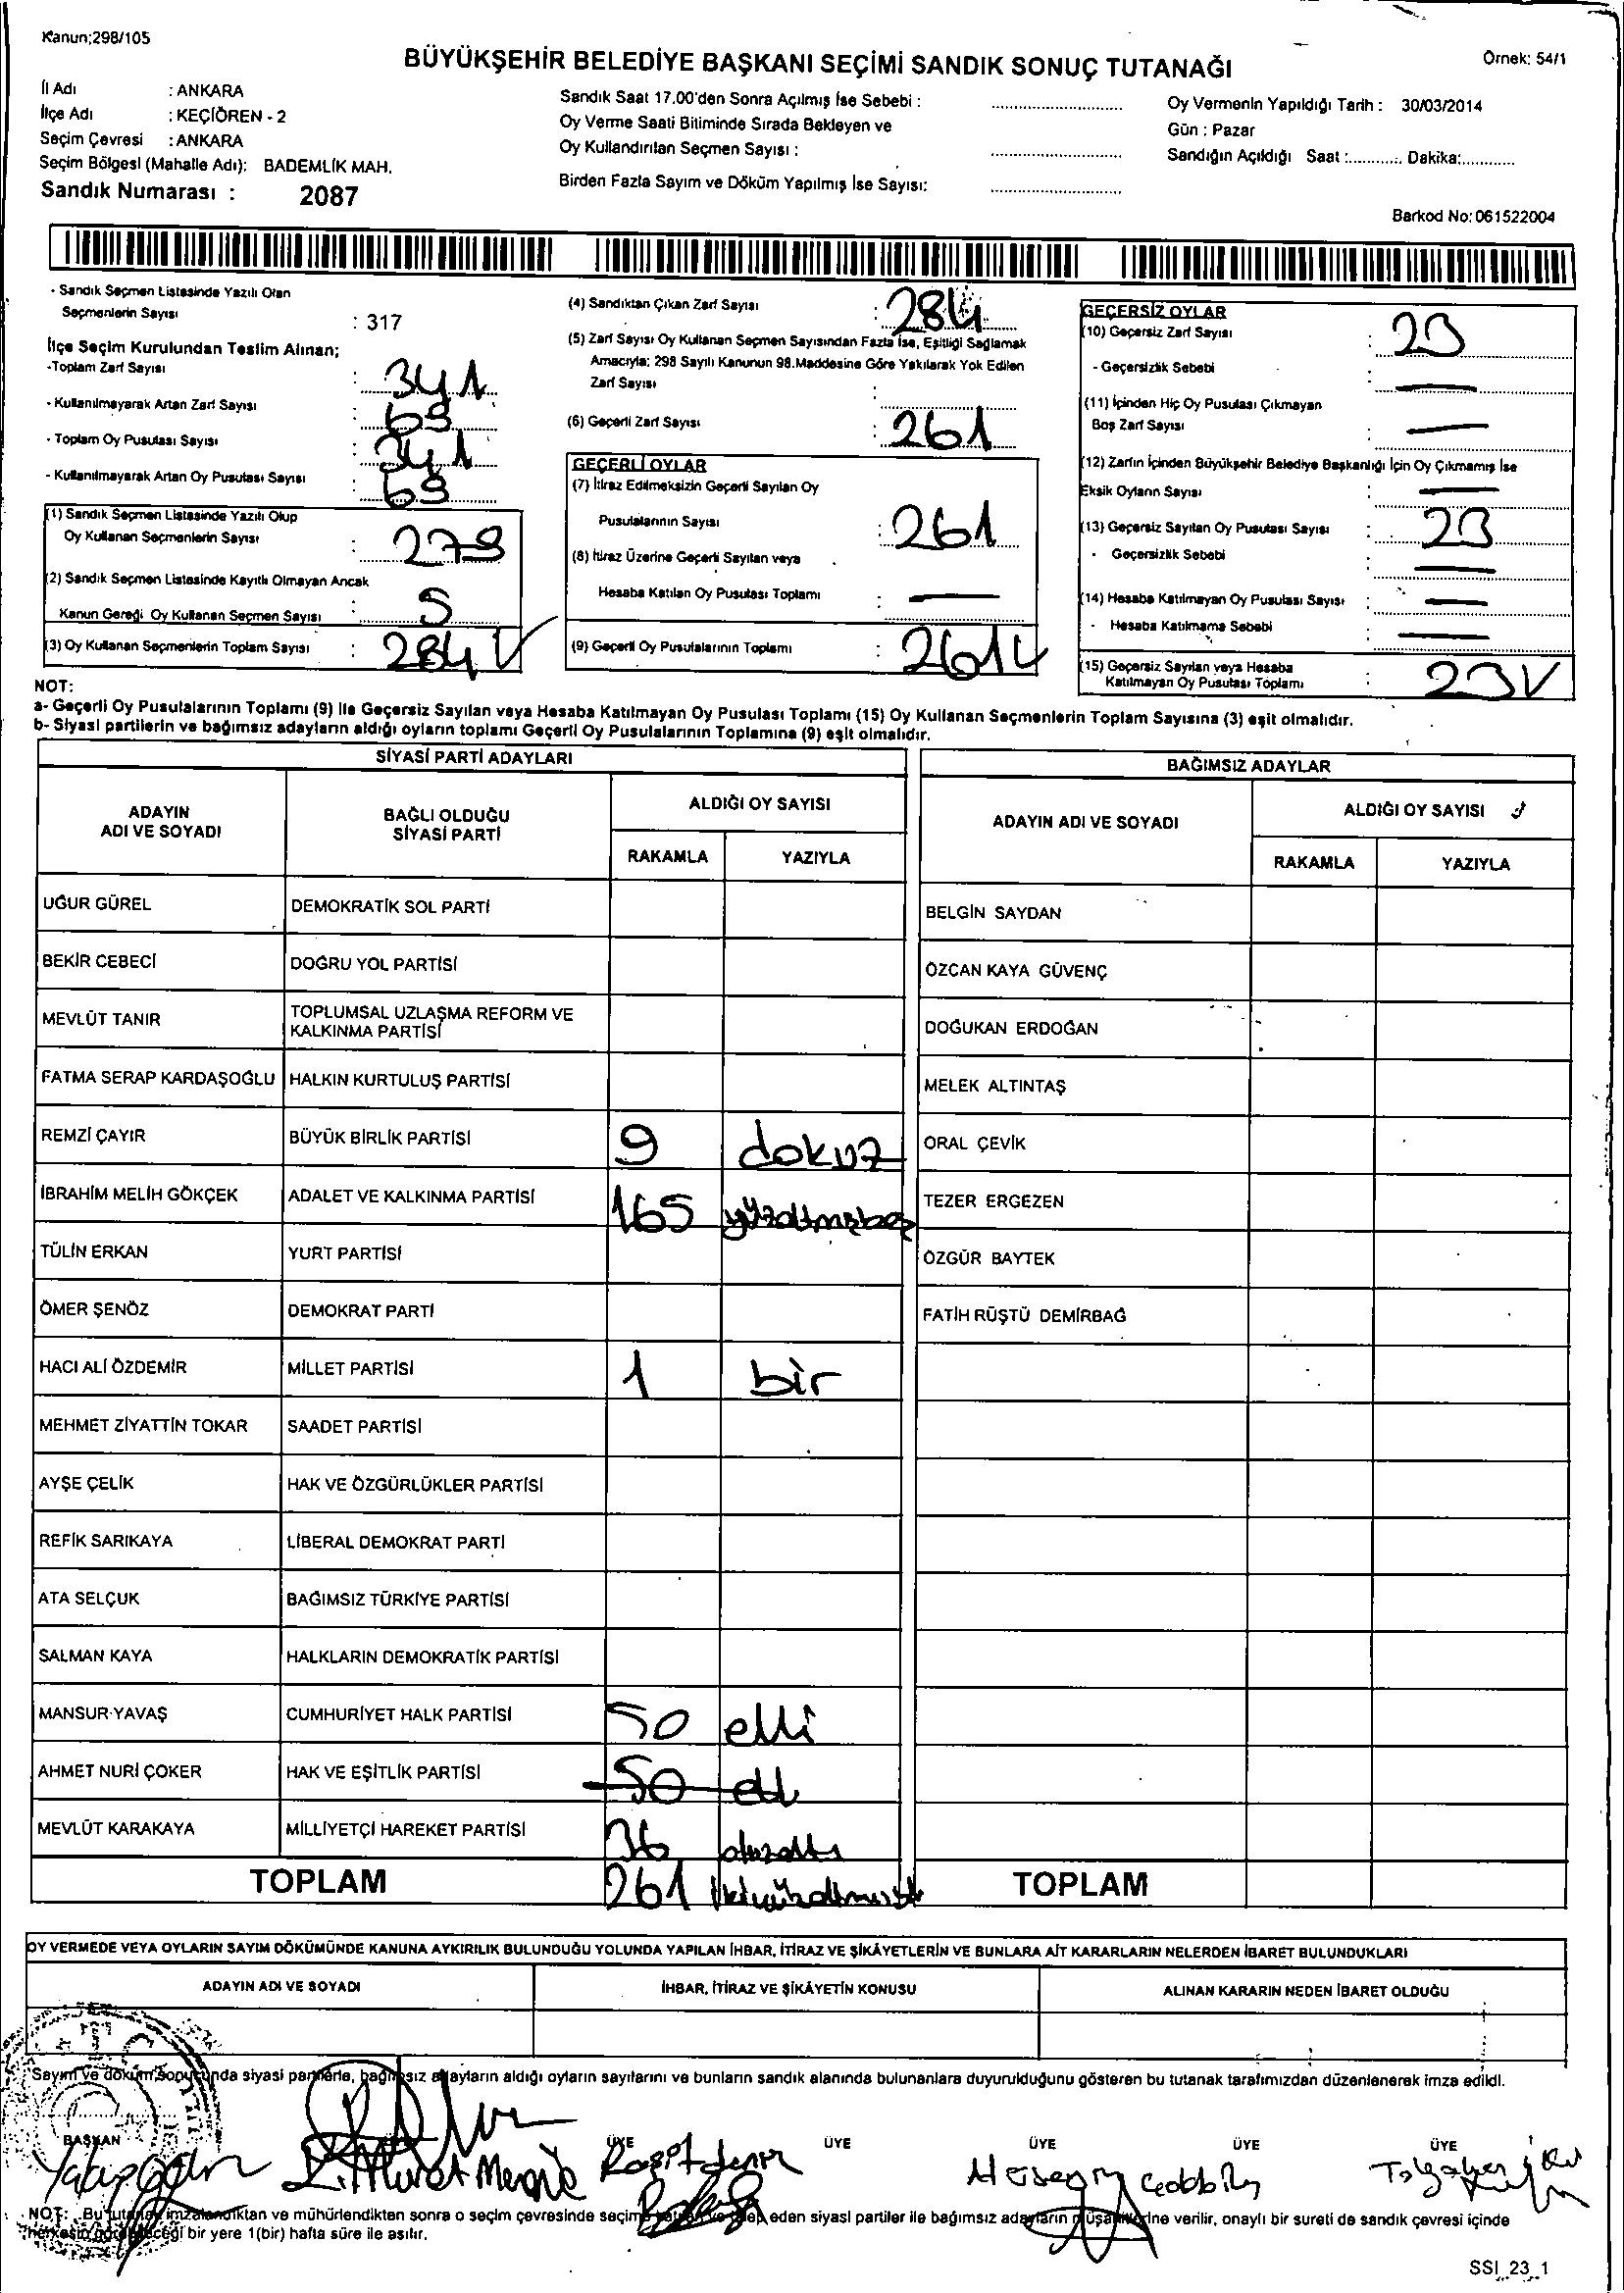 Kanun;298/105
BÜYÜKŞEHİR BELEDİYE BAŞKANI SEÇİMİ SANDIK SONUÇ TUTANAĞI
Örnek: 54/1
İl Adı : ANKARA
İlçe Adı : KEÇİÖREN - 2
Seçim Çevresi : ANKARA
Seçim Bölgesi (Mahalle Adı): BADEMLİK MAH.
Sandık Numarası : 2087
Sandık Saat 17.00'den Sonra Açılmış İse Sebebi :
Oy Verme Saati Bitiminde Sırada Bekleyen ve
Oy Kullandırılan Seçmen Sayısı :
Birden Fazla Sayım ve Döküm Yapılmış İse Sayısı:
Oy Vermenin Yapıldığı Tarih : 30/03/2014
Gün : Pazar
Sandığın Açıldığı Saat :............ Dakika:............
Barkod No: 061522004
- Sandık Seçmen Listesinde Yazılı Olan
Seçmenlerin Sayısı : 317
İlçe Seçim Kurulundan Teslim Alınan;
-Toplam Zarf Sayısı : 341
- Kullanılmayarak Artan Zarf Sayısı : 69
- Toplam Oy Pusulası Sayısı : 341
- Kullanılmayarak Artan Oy Pusulası Sayısı : 69
(1) Sandık Seçmen Listesinde Yazılı Olup
Oy Kullanan Seçmenlerin Sayısı : 279
(2) Sandık Seçmen Listesinde Kayıtlı Olmayan Ancak
Kanun Gereği Oy Kullanan Seçmen Sayısı : 5
(3) Oy Kullanan Seçmenlerin Toplam Sayısı : 284
(4) Sandıktan Çıkan Zarf Sayısı : 284
(5) Zarf Sayısı Oy Kullanan Seçmen Sayısından Fazla İse, Eşitliği Sağlamak
Amacıyla; 298 Sayılı Kanunun 98.Maddesine Göre Yakılarak Yok Edilen
Zarf Sayısı :
(6) Geçerli Zarf Sayısı : 261
GEÇERLİ OYLAR
(7) İtiraz Edilmeksizin Geçerli Sayılan Oy
Pusulalarının Sayısı : 261
(8) İtiraz Üzerine Geçerli Sayılan veya
Hesaba Katılan Oy Pusulası Toplamı : —
(9) Geçerli Oy Pusulalarının Toplamı : 261
GEÇERSİZ OYLAR
(10) Geçersiz Zarf Sayısı : 23
- Geçersizlik Sebebi : —
(11) İçinden Hiç Oy Pusulası Çıkmayan
Boş Zarf Sayısı : —
(12) Zarfın İçinden Büyükşehir Belediye Başkanlığı İçin Oy Çıkmamış İse
Eksik Oyların Sayısı : —
(13) Geçersiz Sayılan Oy Pusulası Sayısı : 23
- Geçersizlik Sebebi : —
(14) Hesaba Katılmayan Oy Pusulası Sayısı : —
- Hesaba Katılmama Sebebi : —
(15) Geçersiz Sayılan veya Hesaba
Katılmayan Oy Pusulası Toplamı : 23
NOT:
a- Geçerli Oy Pusulalarının Toplamı (9) İle Geçersiz Sayılan veya Hesaba Katılmayan Oy Pusulası Toplamı (15) Oy Kullanan Seçmenlerin Toplam Sayısına (3) eşit olmalıdır.
b- Siyasi partilerin ve bağımsız adayların aldığı oyların toplamı Geçerli Oy Pusulalarının Toplamına (9) eşit olmalıdır.
SİYASİ PARTİ ADAYLARI
BAĞIMSIZ ADAYLAR
ADAYIN ADI VE SOYADI
BAĞLI OLDUĞU SİYASİ PARTİ
ALDIĞI OY SAYISI
RAKAMLA YAZIYLA
ADAYIN ADI VE SOYADI
ALDIĞI OY SAYISI
RAKAMLA YAZIYLA
UĞUR GÜREL DEMOKRATİK SOL PARTİ
BELGİN SAYDAN
BEKİR CEBECİ DOĞRU YOL PARTİSİ
ÖZCAN KAYA GÜVENÇ
MEVLÜT TANIR TOPLUMSAL UZLAŞMA REFORM VE
KALKINMA PARTİSİ
DOĞUKAN ERDOĞAN
FATMA SERAP KARDAŞOĞLU HALKIN KURTULUŞ PARTİSİ
MELEK ALTINTAŞ
REMZİ ÇAYIR BÜYÜK BİRLİK PARTİSİ 9 dokuz
ORAL ÇEVİK
İBRAHİM MELİH GÖKÇEK ADALET VE KALKINMA PARTİSİ 165 yüzaltmışbeş
TEZER ERGEZEN
TÜLİN ERKAN YURT PARTİSİ
ÖZGÜR BAYTEK
ÖMER ŞENÖZ DEMOKRAT PARTİ
FATİH RÜŞTÜ DEMİRBAĞ
HACI ALİ ÖZDEMİR MİLLET PARTİSİ 1 bir
MEHMET ZİYATTİN TOKAR SAADET PARTİSİ
AYŞE ÇELİK HAK VE ÖZGÜRLÜKLER PARTİSİ
REFİK SARIKAYA LİBERAL DEMOKRAT PARTİ
ATA SELÇUK BAĞIMSIZ TÜRKİYE PARTİSİ
SALMAN KAYA HALKLARIN DEMOKRATİK PARTİSİ
MANSUR YAVAŞ CUMHURİYET HALK PARTİSİ 50 elli
AHMET NURİ ÇOKER HAK VE EŞİTLİK PARTİSİ 50
MEVLÜT KARAKAYA MİLLİYETÇİ HAREKET PARTİSİ 36 otuzaltı
TOPLAM 261
TOPLAM
OY VERMEDE VEYA OYLARIN SAYIM DÖKÜMÜNDE KANUNA AYKIRILIK BULUNDUĞU YOLUNDA YAPILAN İHBAR, İTİRAZ VE ŞİKÂYETLERİN VE BUNLARA AİT KARARLARIN NELERDEN İBARET BULUNDUKLARI
ADAYIN ADI VE SOYADI İHBAR, İTİRAZ VE ŞİKÂYETİN KONUSU ALINAN KARARIN NEDEN İBARET OLDUĞU
Sayım ve döküm sonucunda siyasi partilerle, bağımsız adayların aldığı oyların sayılarını ve bunların sandık alanında bulunanlara duyurulduğunu gösteren bu tutanak tarafımızdan düzenlenerek imza edildi.
BAŞKAN ÜYE ÜYE ÜYE ÜYE ÜYE
NOT: Bu tutanak imzalandıktan ve mühürlendikten sonra o seçim çevresinde seçime eden siyasi partiler ile bağımsız adayların müşahitlerine verilir, onaylı bir sureti de sandık çevresi içinde
herkesin göreceği bir yere 1(bir) hafta süre ile asılır.
SSI_23_1